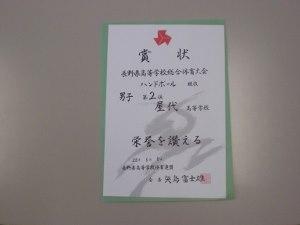 賞状
長野県高等学校総合体育大会
ハンドボール 競技
男子 第2位
屋代 高等学校
栄誉を讃える
長野県高等学校体育連盟
会長 矢島富士雄